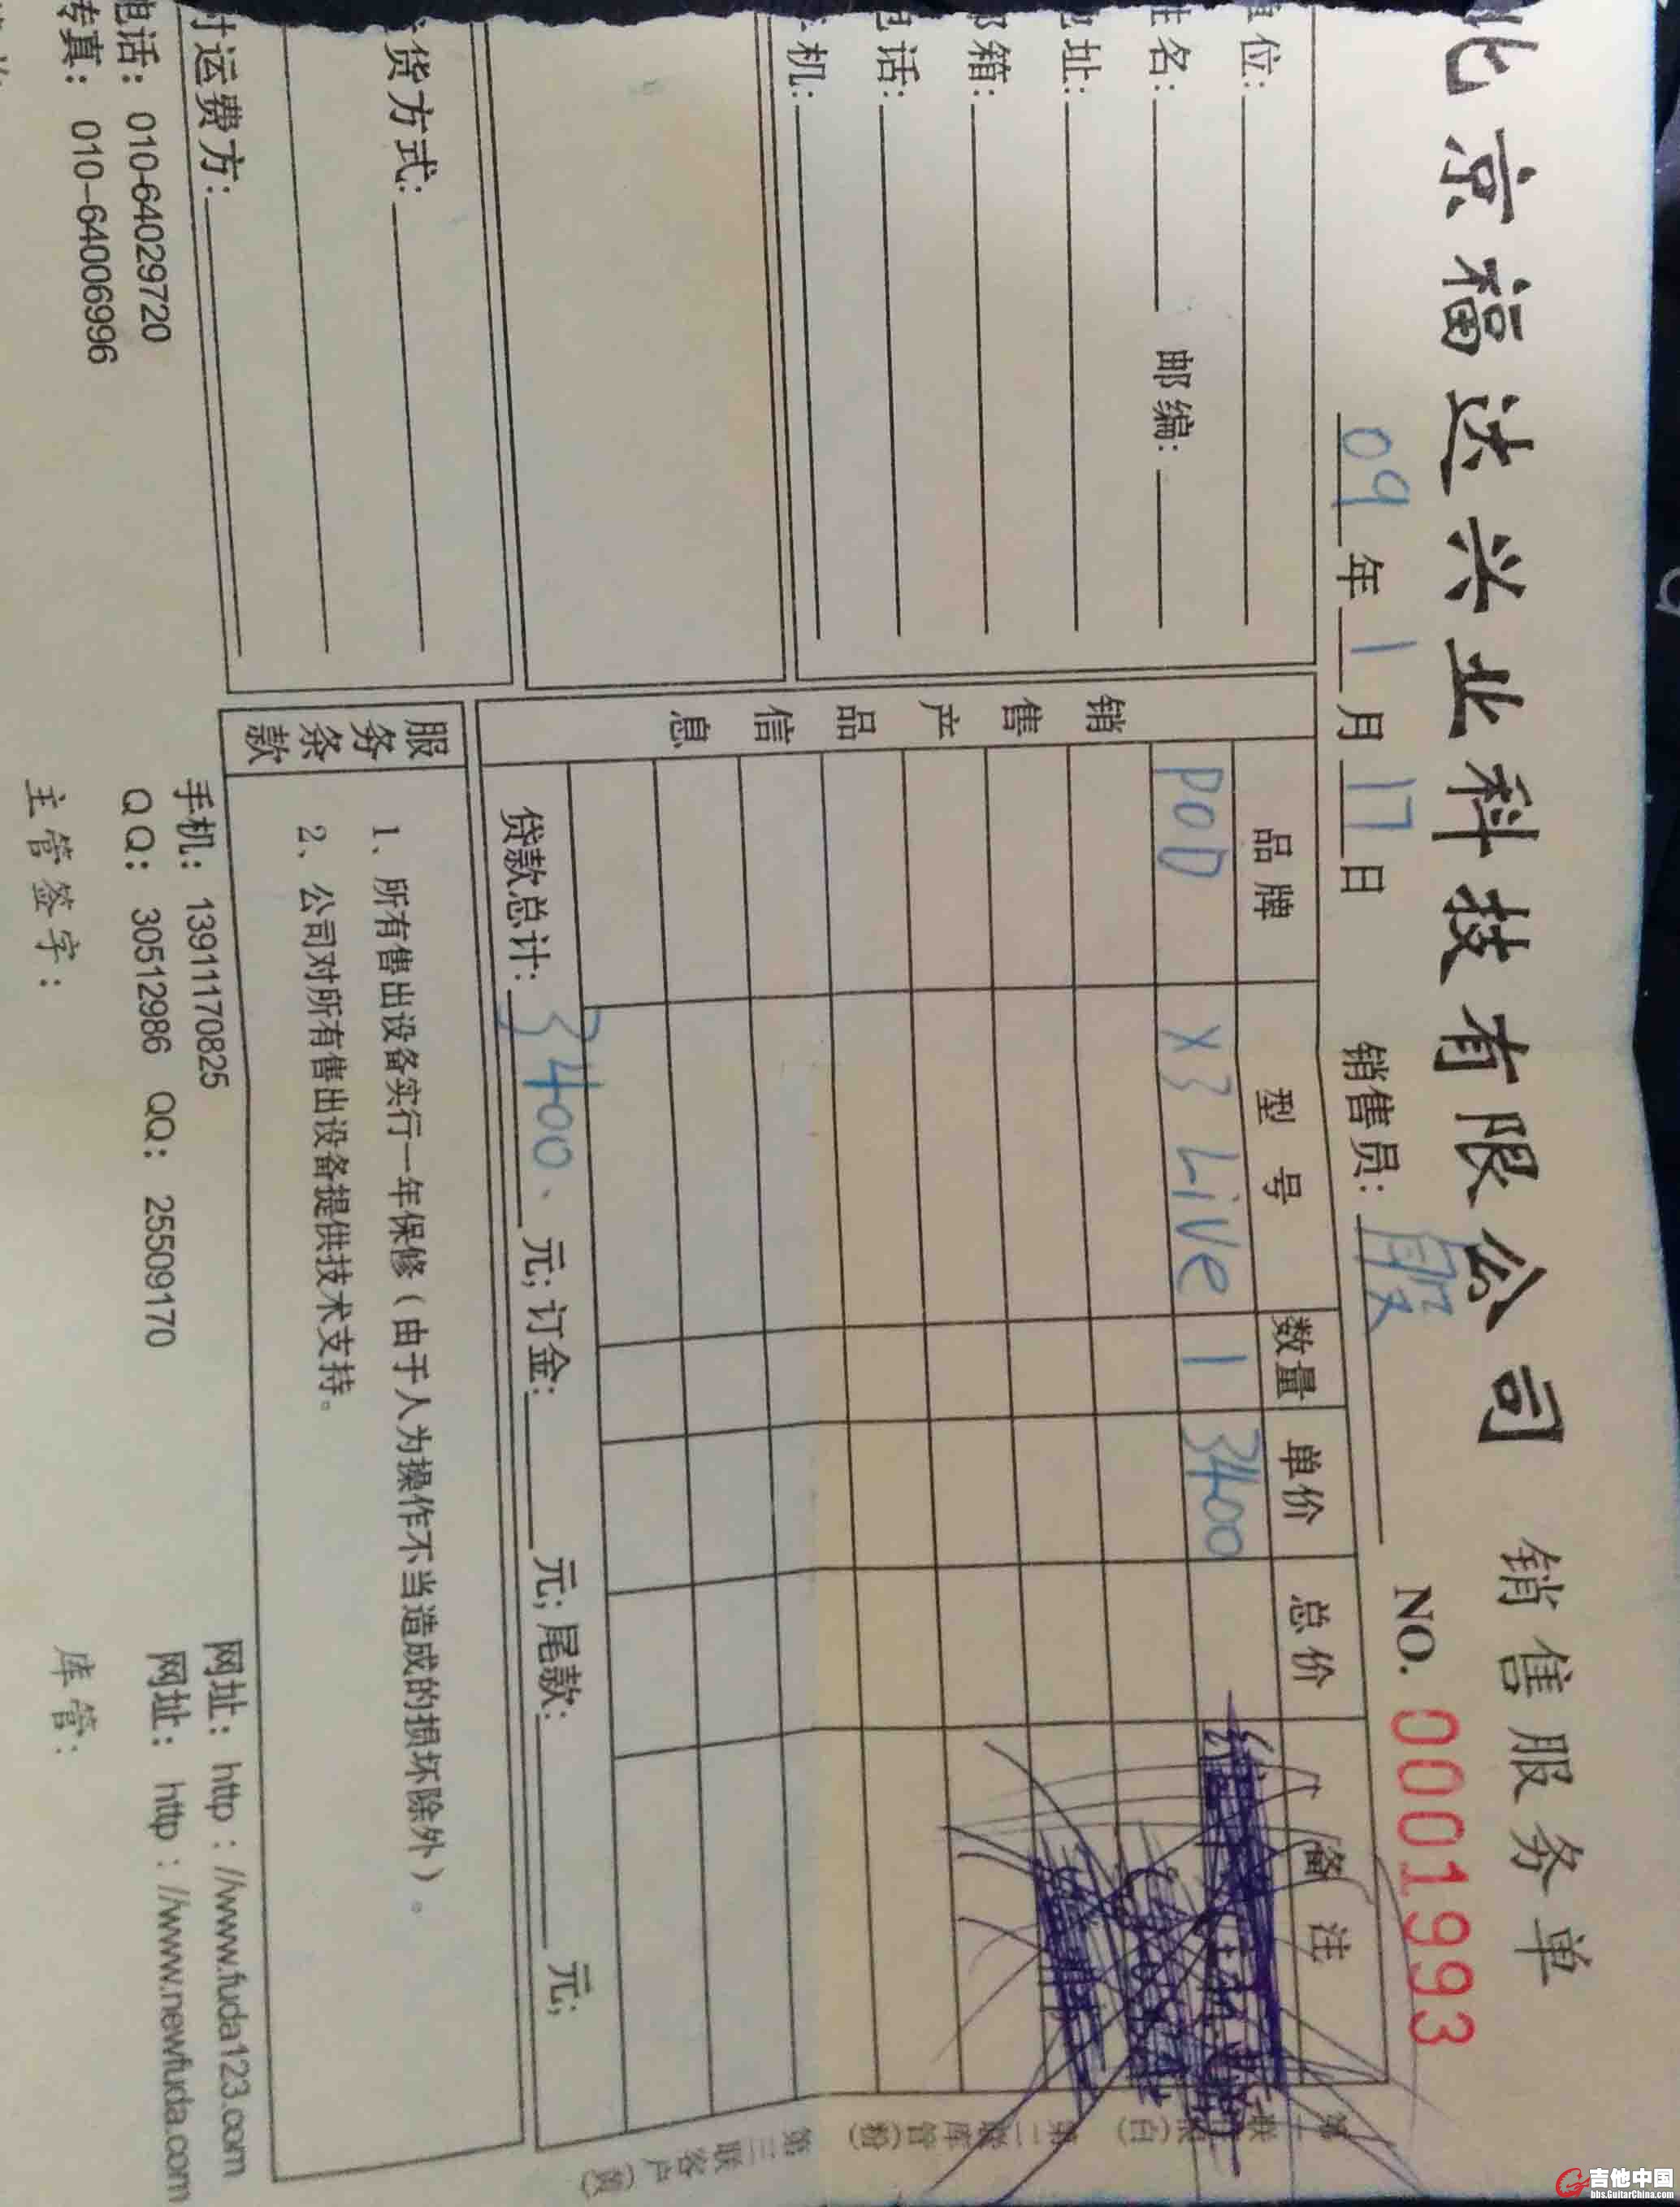 北京福达兴业科技有限公司 销售服务单
09年1月17日 销售员: NO. 0001993
位:
名: 邮编:
址:
邮箱:
话:
机:
货方式:
付运费方:
销售产品信息
品牌 型号 数量 单价 总价 备注
POD X3 Live 1 3400
贷款总计: 3400、元; 订金: 元; 尾款: 元;
服务条款
1、所有售出设备实行一年保修(由于人为操作不当造成的损坏除外)。
2、公司对所有售出设备提供技术支持。
第二联库管(粉)
第三联客户(黄)
电话: 010-64029720 手机: 13911170825 网址: http://www.fuda123.com
传真: 010-64006996 QQ: 30512986 QQ: 25509170 网址: http://www.newfuda.com
主管签字: 库管:
吉他中国
bbs.GuitarChina.com